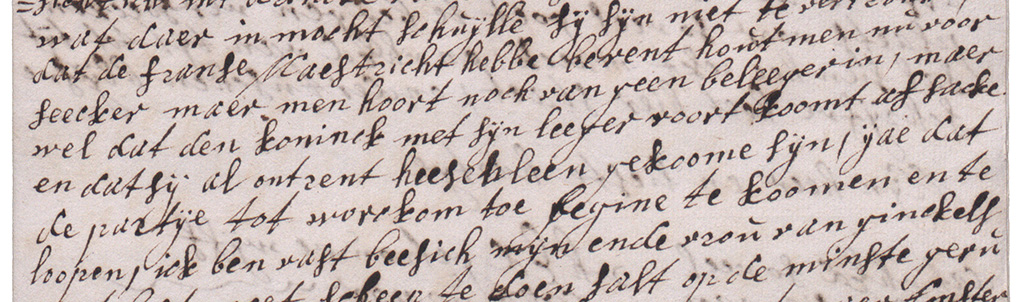 wat daer in mocht schuÿlle sÿ sÿn niet te
dat de franse Maestricht hebbe berent hout men nu voor
seecker maer men hoort noch van geen beleegerin, maer
wel dat den koninck met sÿn leeger voort koomt af sacke
en dat sÿ al ontrent heeschleen gekoome sÿn, ÿae dat
de partÿe tot worckom toe begine te koomen en te
loopen, ick ben vast beesich mÿn ende vrou van ginckels
te doen salt op de minste geru